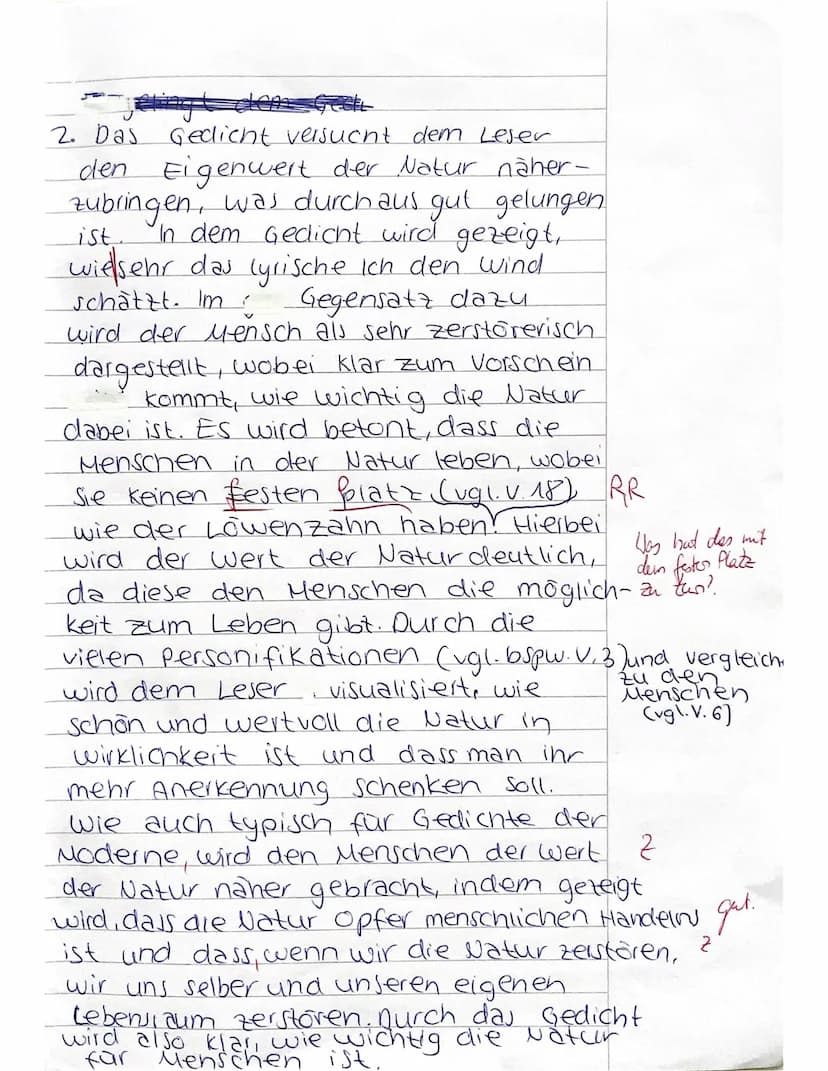 2. Das Gedicht versucht dem Leser
den Eigenwert der Natur näher-
zubringen, was durchaus gut gelungen
ist. In dem Gedicht wird gezeigt,
wie|sehr das lyrische Ich den Wind
schätzt. Im Gegensatz dazu
wird der Mensch als sehr zerstörerisch
dargestellt, wobei klar zum Vorschein
kommt, wie wichtig die Natur
dabei ist. Es wird betont, dass die
Menschen in der Natur leben, wobei
sie keinen festen Platz (vgl. V. 18) RR
wie der Löwenzahn haben. Hierbei
wird der Wert der Natur deutlich,
Was hat das mit
dem festen Platz
zu tun?
da diese den Menschen die möglich-
keit zum Leben gibt. Durch die
vielen Personifikationen (vgl. bspw. V. 3) und vergleich
zu den
Menschen
(vgl. V. 6)
wird dem Leser visualisiert, wie
schön und wertvoll die Natur in
wirklichkeit ist und dass man ihr
mehr Anerkennung schenken soll.
Wie auch typisch für Gedichte der
Moderne, wird den Menschen der Wert Z
der Natur näher gebracht, indem gezeigt
wird, dass die Natur Opfer menschlichen Handelns gut.
ist und dass, wenn wir die Natur zerstören, Z
wir uns selber und unseren eigenen
Lebensraum zerstören. Durch das Gedicht
wird also klar, wie wichtig die Natur
für Menschen ist.